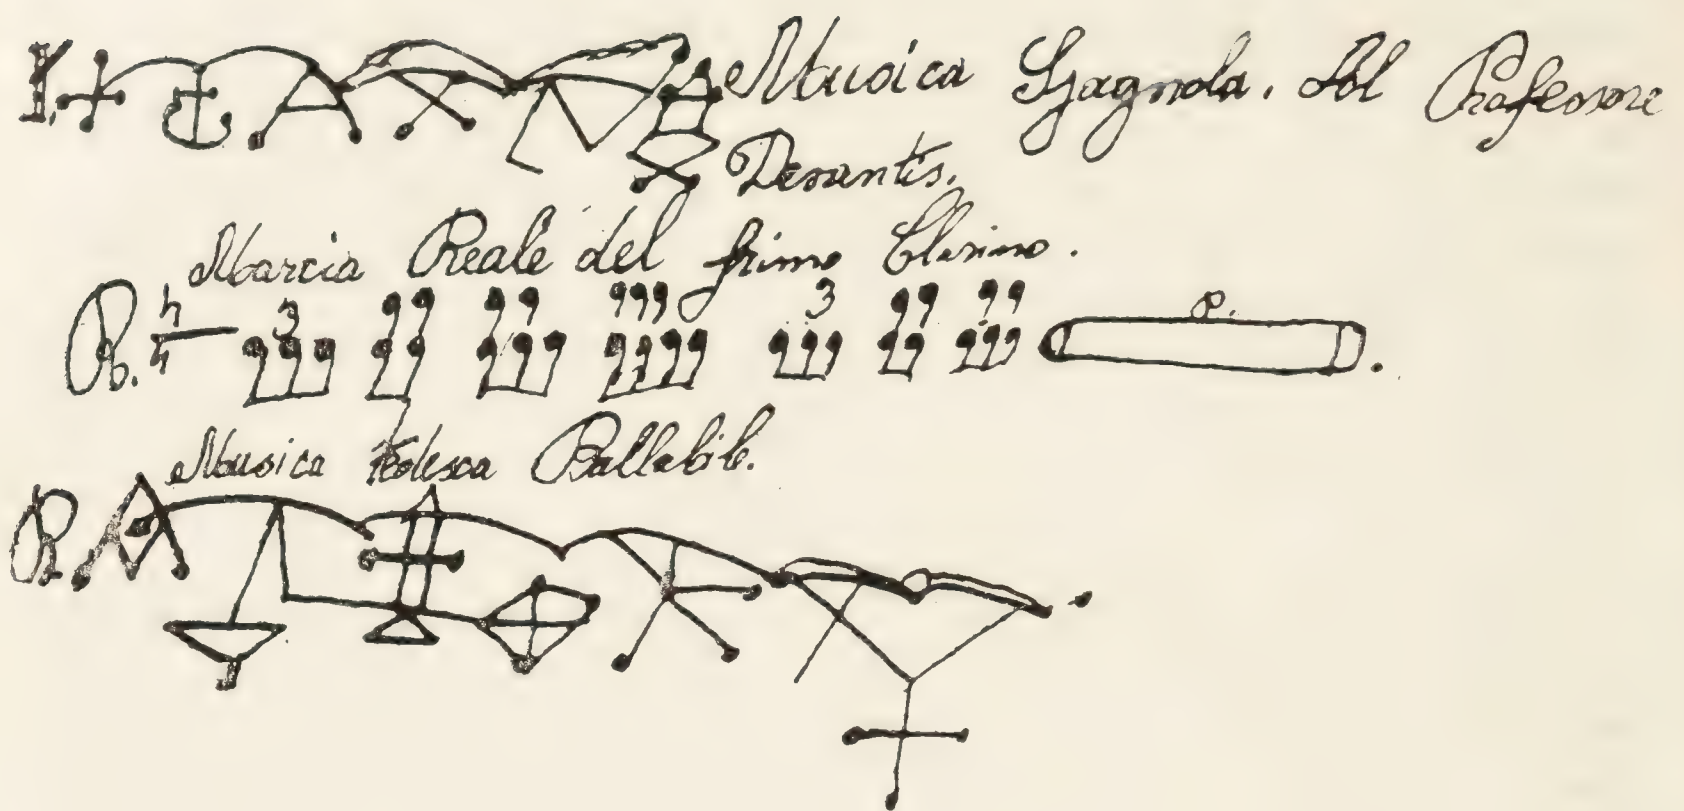 Musica Spagnola. Del Professore
Desantis.
Marcia Reale del primo Clarino.
3 3 P.
Musica Tedesca Ballabile.
R.